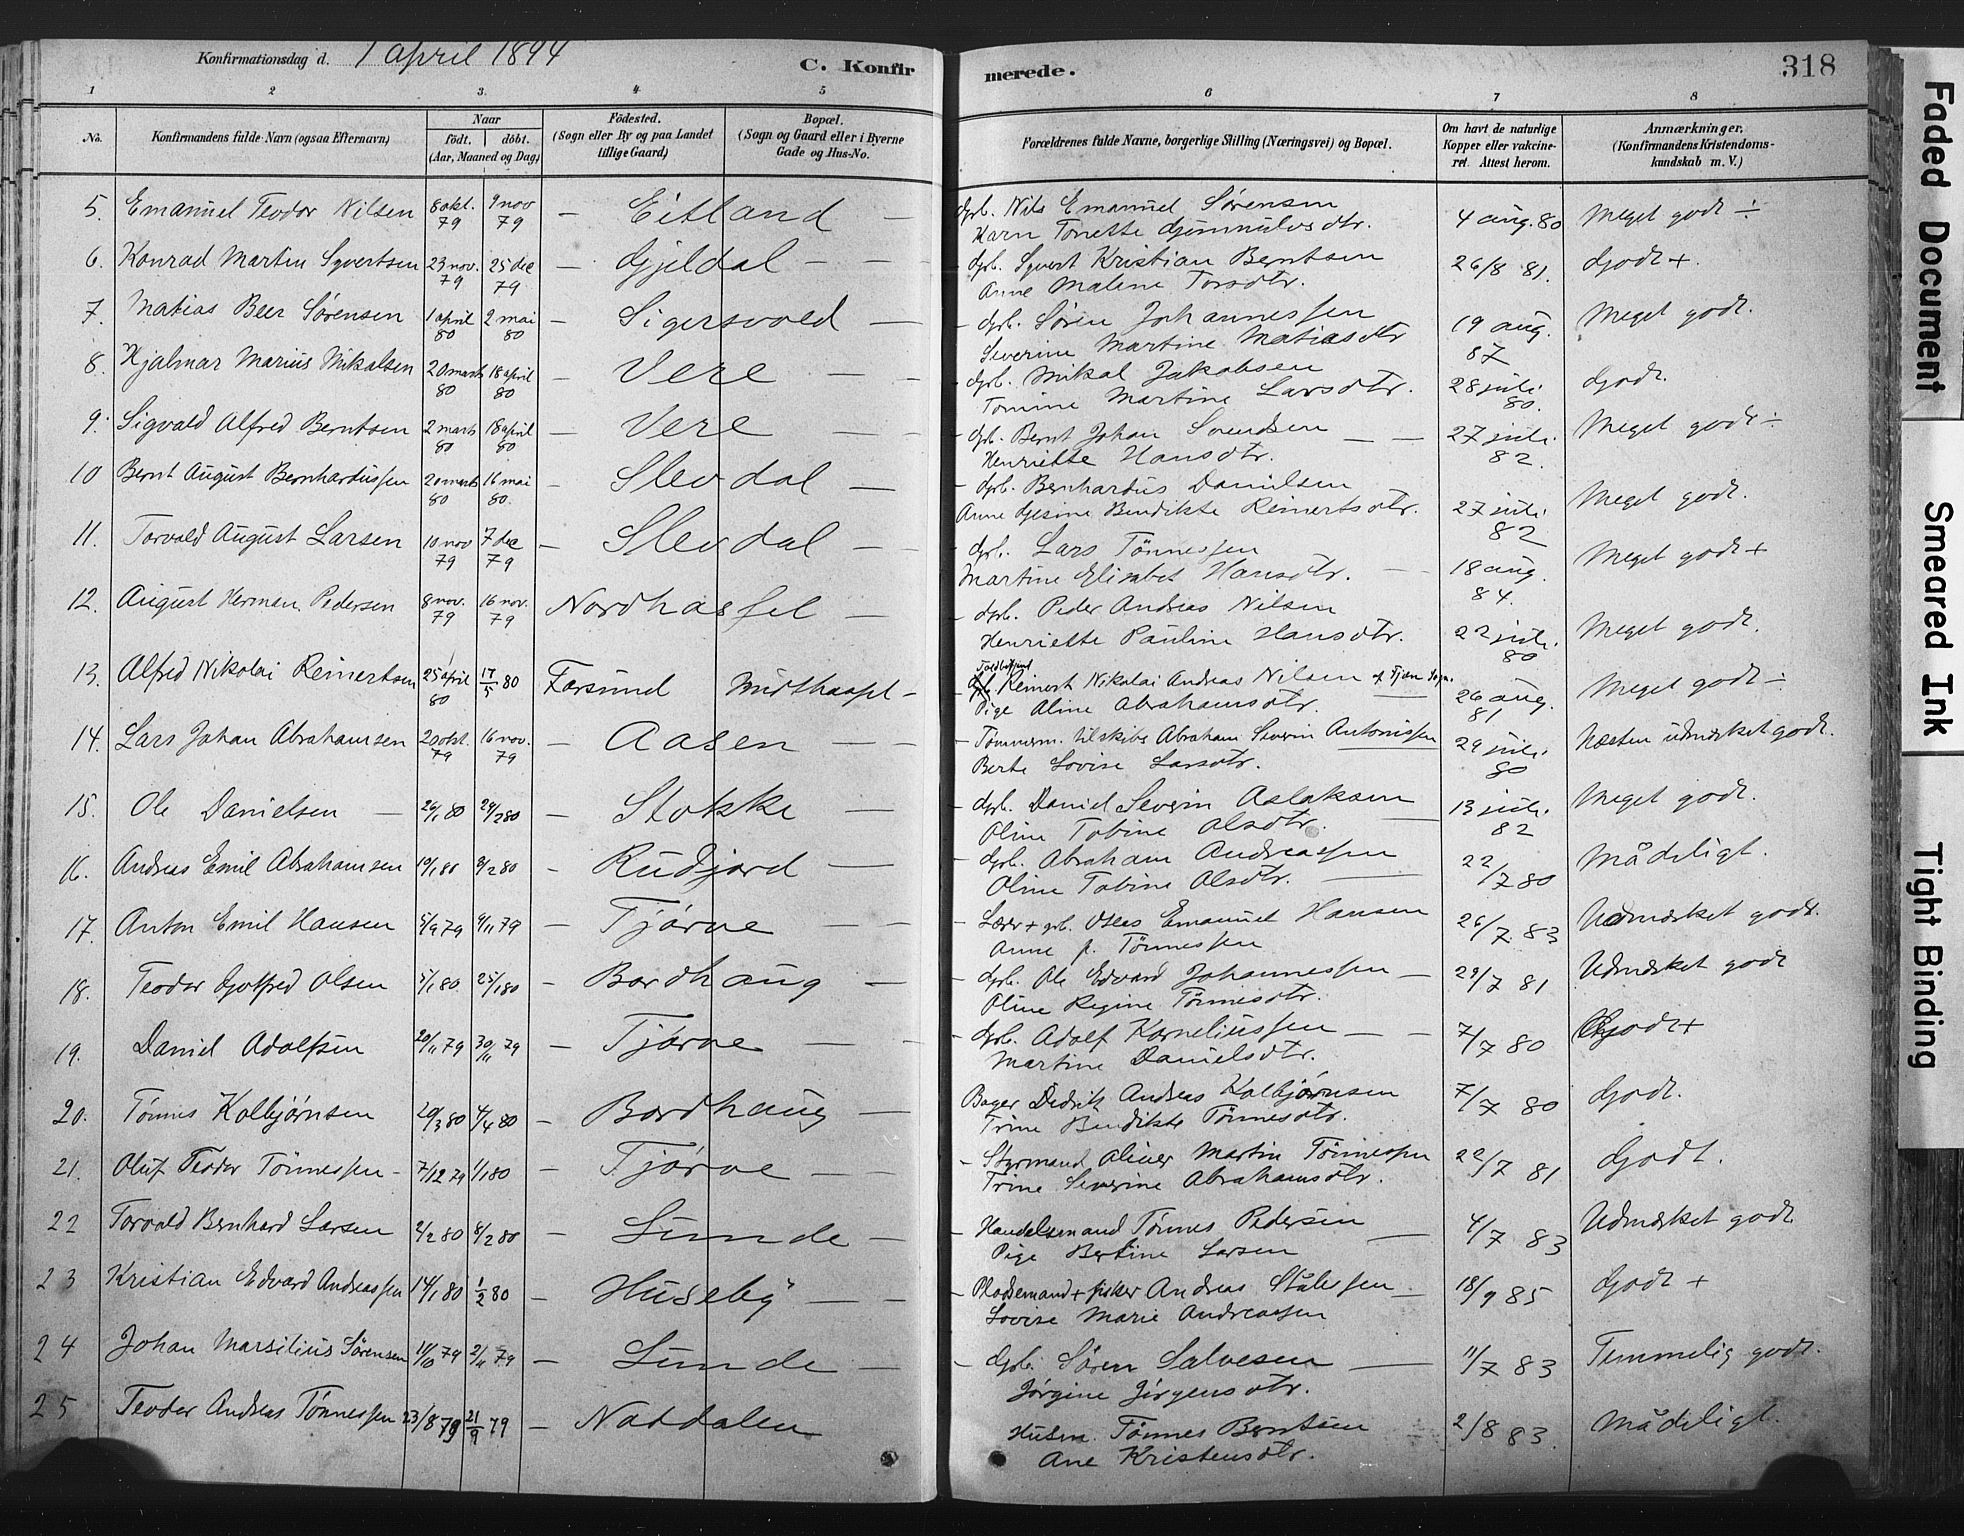 Konfirmationsdag d. 1 april 1894
C. Konfirmerede.
318
1 2 3. 4 5 6 7 8
No.
Konfirmandens fulde Navn (ogsaa Efternavn)
Naar
født. døbt.
(Aar, Maaned og Dag)
Fødested.
(Sogn eller By og paa Landet
tillige Gaard)
Bopæl.
(Sogn og Gaard eller i Byerne
Gade og Hus-No.
Forældrenes fulde Navne, borgerlige Stilling (Næringsvei) og Bopæl.
Om havt de naturlige
Kopper eller vakcine-
ret. Attest herom.
Anmærkninger.
(Konfirmandens Kristendoms-
kundskab m. V.)
5. Emanuel Teodor Nilsen 8 okt. 79 9 nov 79 – Eitland – gbr. Nils Emanuel Sørensen 4 aug. 80 Meget godt ÷
Karn Tonette Gjermulvsdtr.
6. Konrad Martin Syvertsen 23 nov. 79 25 dec 79 – Gjeldal – – gbr. Syvert Kristian Berntsen 26/8 81. Godt +.
Anne Maline Torsdtr.
7. Matias Beer Sørensen 1 april 80 2 mai 80 – Sigersvold – – gbr. Søren Johannessen 19 aug. 87 Meget godt.
Severine Martine Matiasdtr
8. Hjalmar Marius Mikalsen 20 marts 80 18 april 80 – Vere – – gbr. Mikal Jakobsen 28 juli. 80. Godt.
Tomine Martine Larsdtr.
9. Sigvald Alfred Berntsen 2 marts 80 18 april 80 – Vere – – gbr. Bernt Johan Svendsen – – 27 juli. 82. Meget godt ÷
Henriette Hansdtr.
10 Bernt August Bernhardussen 20 marts 80 16 mai 80. – Slevdal – – gbr. Bernhardus Danielsen 27 juli. 82 Meget godt.
Anne Gjesine Bendikte Reinertsdtr.
11. Torvald August Larsen 10 nov 79 7 dec 79 – Slevdal – – gbr. Lars Tønnessen 18 aug. 84. Meget godt +
Martine Elisabet Hansdtr. –
12. August Herman Pedersen 8 nov. 79 16 nov. 79 Nordhassel – – gbr. Peder Andreas Nilsen 22 juli. 80 Meget godt.
Henriette Pauline Hansdtr.
13. Alfred Nikolai Reinertsen 25 april 80 17/5 80 Farsund Midthassel – Reinert Nikolai Andreas Nilsen 26 aug. 81 Meget godt ÷
Pige Aline Abrahamsdtr.
14. Lars Johan Abrahamsen 20 okt. 79 16 nov. 79 – Aasen – – – Tømmerm. tilskibs Abraham Severin Antonissen 29 juli. 80 Næsten udmerket godt.
Berte Lovise Larsdtr.
15. Ole Danielsen – 26/1 80 29/2 80 – Stokke – – gbr. Daniel Severin Aslaksen 13 juli. 82 Meget godt.
Oline Tobine Olsdtr.
16. Andreas Emil Abrahamsen 10/1 80 8/2 80 – Rudjord – gbr. Abraham Andreassen 22/7 80 Mådeligt.
Oline Tobine Olsdtr.
17. Anton Emil Hansen 5/9 79 9/11 79 – Tjørve – – – Lærer + gbr. Osles Emanuel Hansen 26/7. 83 Udmerket godt.
Anne f. Tønnessen
18. Teodor Gotfred Olsen 5/1 80. 25/1 80 – Bordhaug – – gbr. Ole Edvard Johannessen – 29/7 81 Udmerket godt
Oline Regine Tønnesdtr.
19. Daniel Adolfsen 20/11 79 30/11 79 – Tjørve – – – gbr. Adolf Korneliussen – – 7/7 80 Godt +
Martine Danielsdtr.
20. Tønnes Kolbjørnsen 20/3 80 4/4 80 – Bordhaug – Bager Didrik Andreas Kolbjørnsen 7/7 80 Godt.
Trine Bendikte Tønnesdtr.
21. Oluf Teodor Tønnessen – 7/12 79 1/1 80 – Tjørve – – – Styrmand Oliver Martin Tønnessen 22/7 81 Godt.
Trine Severine Abrahamsdtr.
22 Torvald Bernhard Larsen 2/2 80 8/2 80 – Sunde – – Handelsmand Tønnes Pedersen 4/7 83 Udmerket godt
Pige Bertine Larsen
23 Kristian Edvard Andreassen 14/1 80 1/2 80 – Huseby – – – Pladsemand + fisker Andreas Stålessen – 18/9 85 Godt +
Lovise Marie Andreassen
24 Johan Marsilius Sørensen 14/10 79 2/11 79 – Sunde – – gbr. Søren Salvesen 11/7 83 Temmelig godt.
Jørgine Jørgensdtr.
25 Teodor Andreas Tønnessen 23/8 79 21/9 79 – Noddalen Husm. Tønnes Berntsen 2/8 83. Mådeligt.
Ane Kristensdtr.
Faded Document
Smeared Ink
Tight Binding